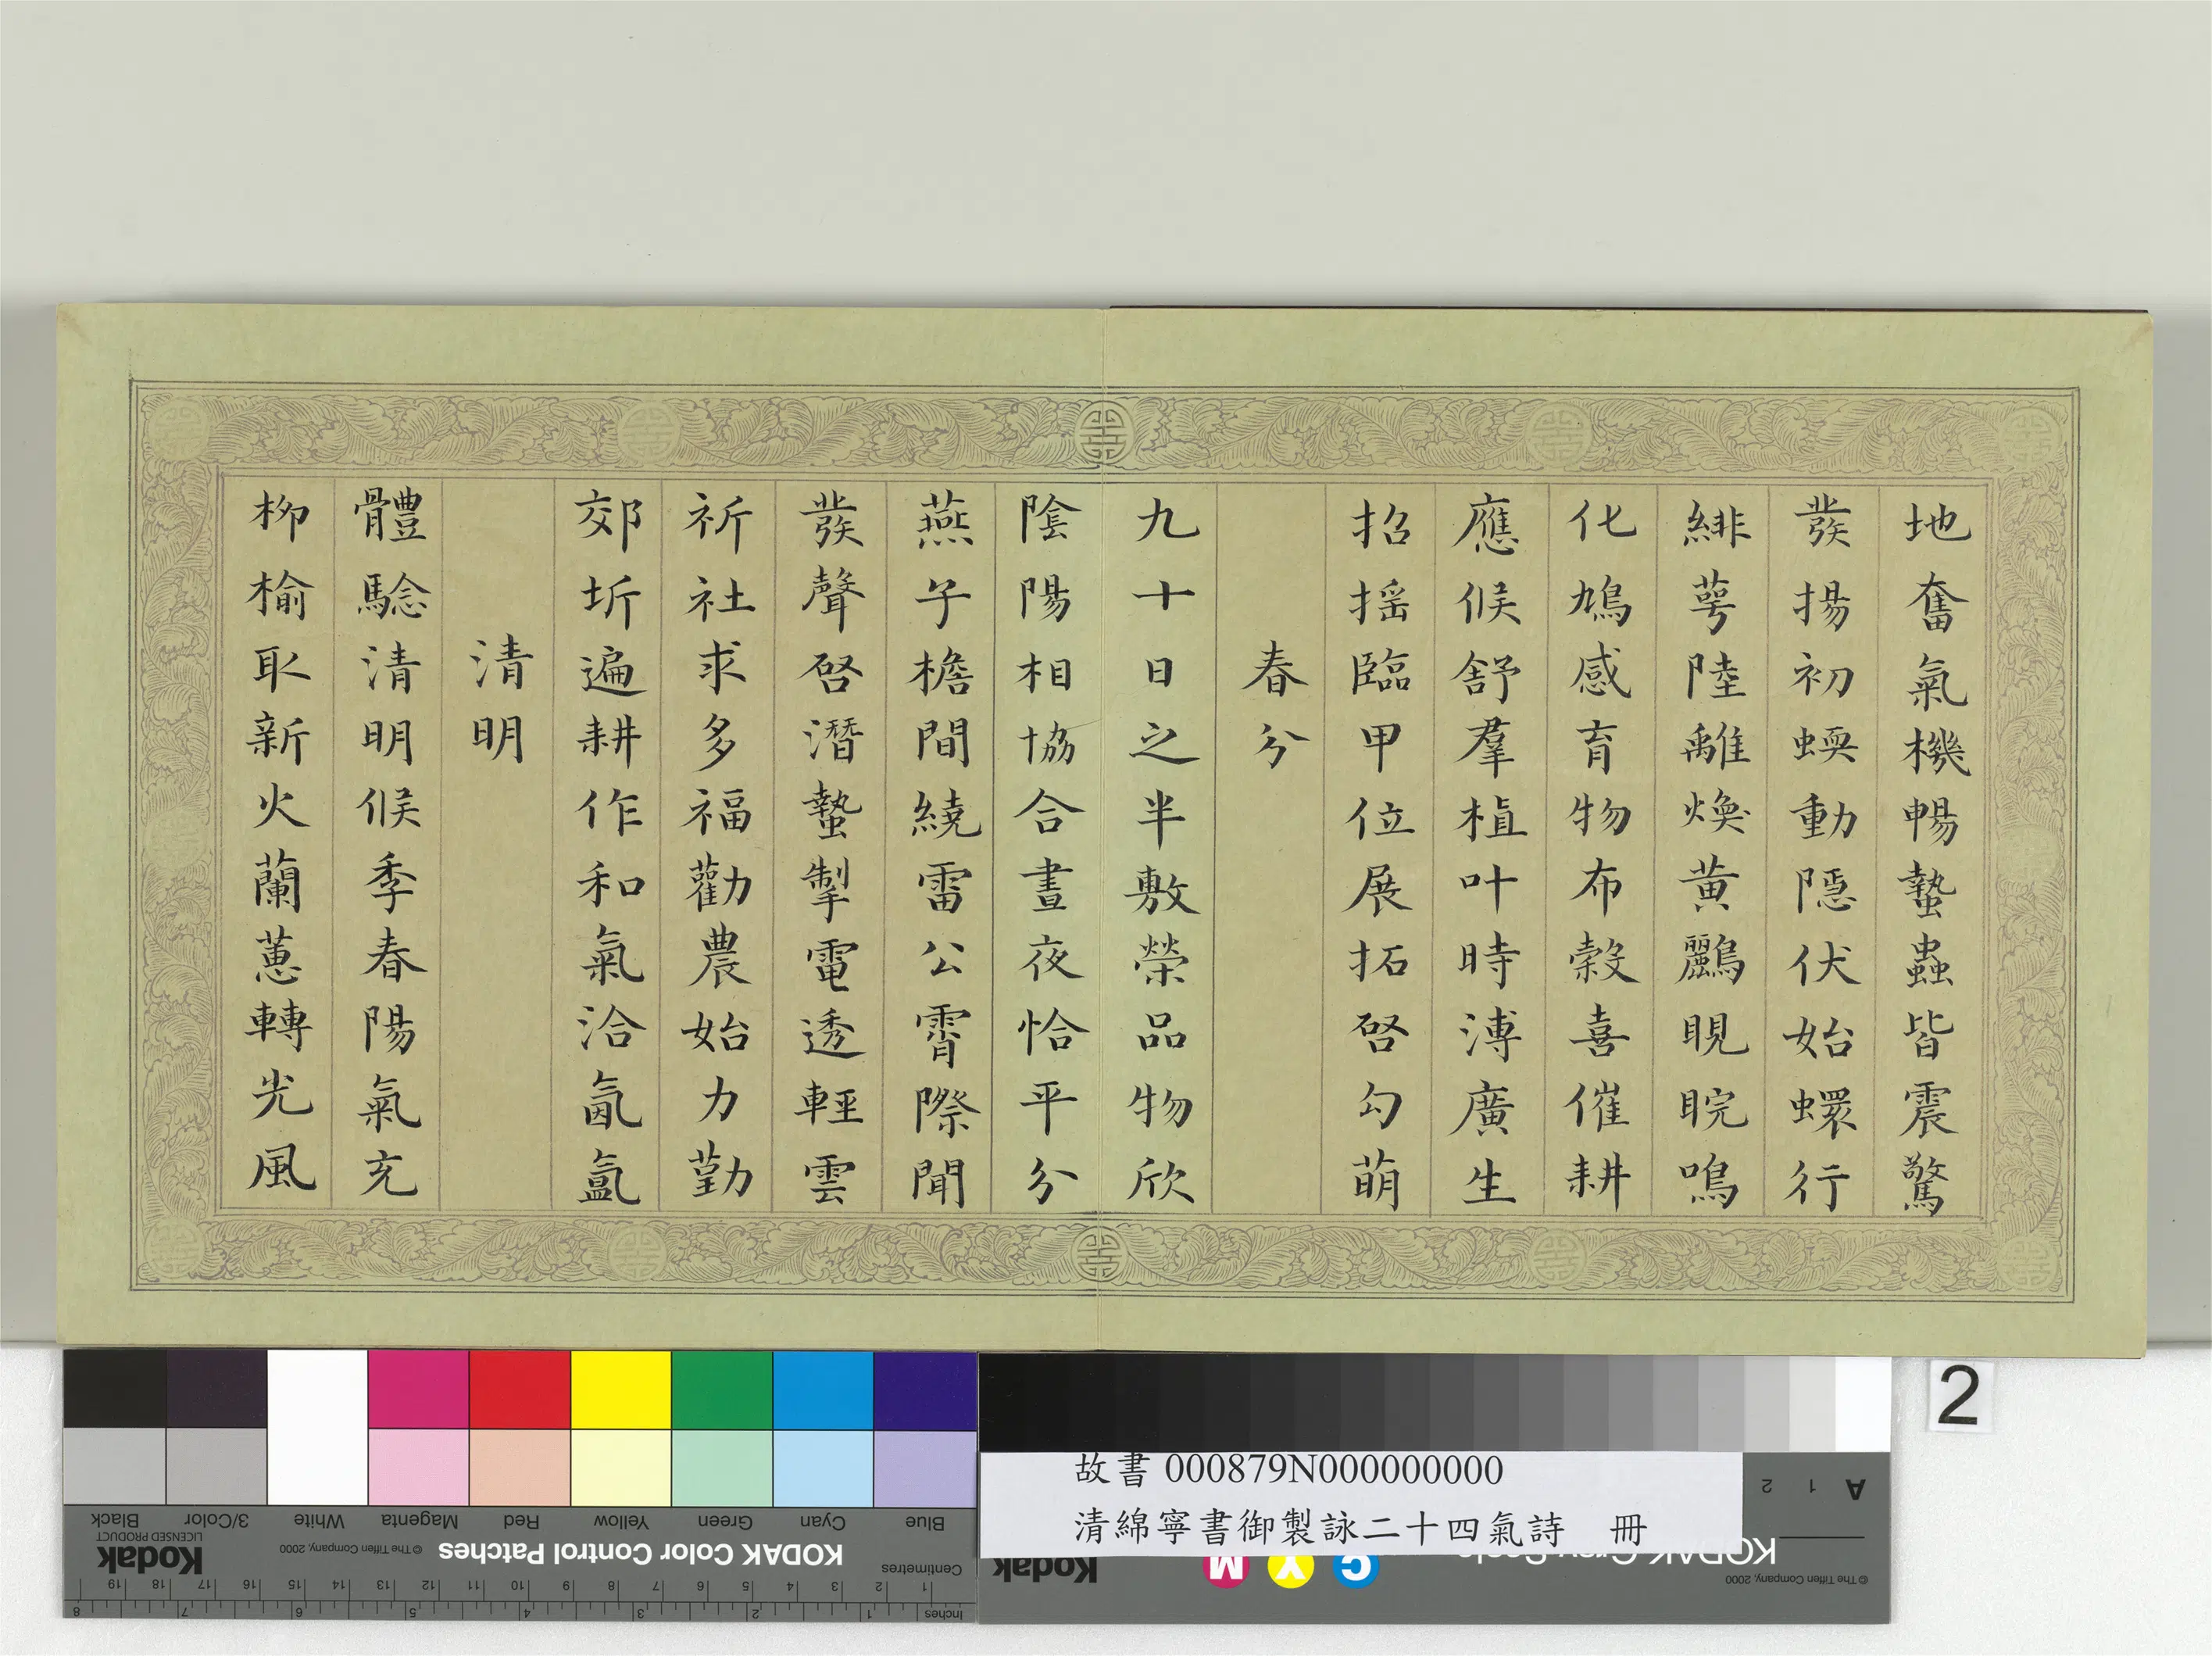 地奮氣機暢蟄蟲皆震驚
發揚初蝡動隱伏始蠉行
緋萼陸離煥黃鸝睍睆鳴
化鳩感育物布穀喜催耕
應候舒羣植叶時溥廣生
招搖臨甲位展拓啓勾萌
春分
九十日之半敷榮品物欣
陰陽相協合晝夜恰平分
燕子檐間繞雷公霄際聞
發聲啓潛蟄掣電透輕雲
祈社求多福勸農始力勤
郊圻遍耕作和氣洽氤氳
清明
體驗清明候季春陽氣充
柳榆取新火蘭蕙轉光風
2
故書 000879N000000000
清綿寧書御製詠二十四氣詩　冊
Blue Cyan Green Yellow Red Magenta White 3/Color Black
KODAK Color Control Patches © The Tiffen Company, 2000 Kodak
LICENSED PRODUCT
Centimetres 1 2 3 4 5 6 7 8 9 10 11 12 13 14 15 16 17 18 19
Inches 1 2 3 4 5 6 7 8
A 1 2
C Y M Kodak
© The Tiffen Company, 2000